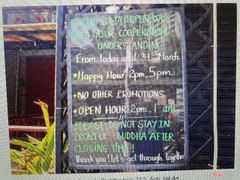 OPEN, WE
YOUR COOPERATION
UNDERSTANDING
From today until 31st March
• Happy Hour 2pm_5pm
• NO OTHER PROMOTIONS
• OPEN HOUR 2pm_1am
PLEASE DO NOT STAY IN
FRONT OF BUDDHA AFTER
CLOSING TIME!
thank you! let's get through together